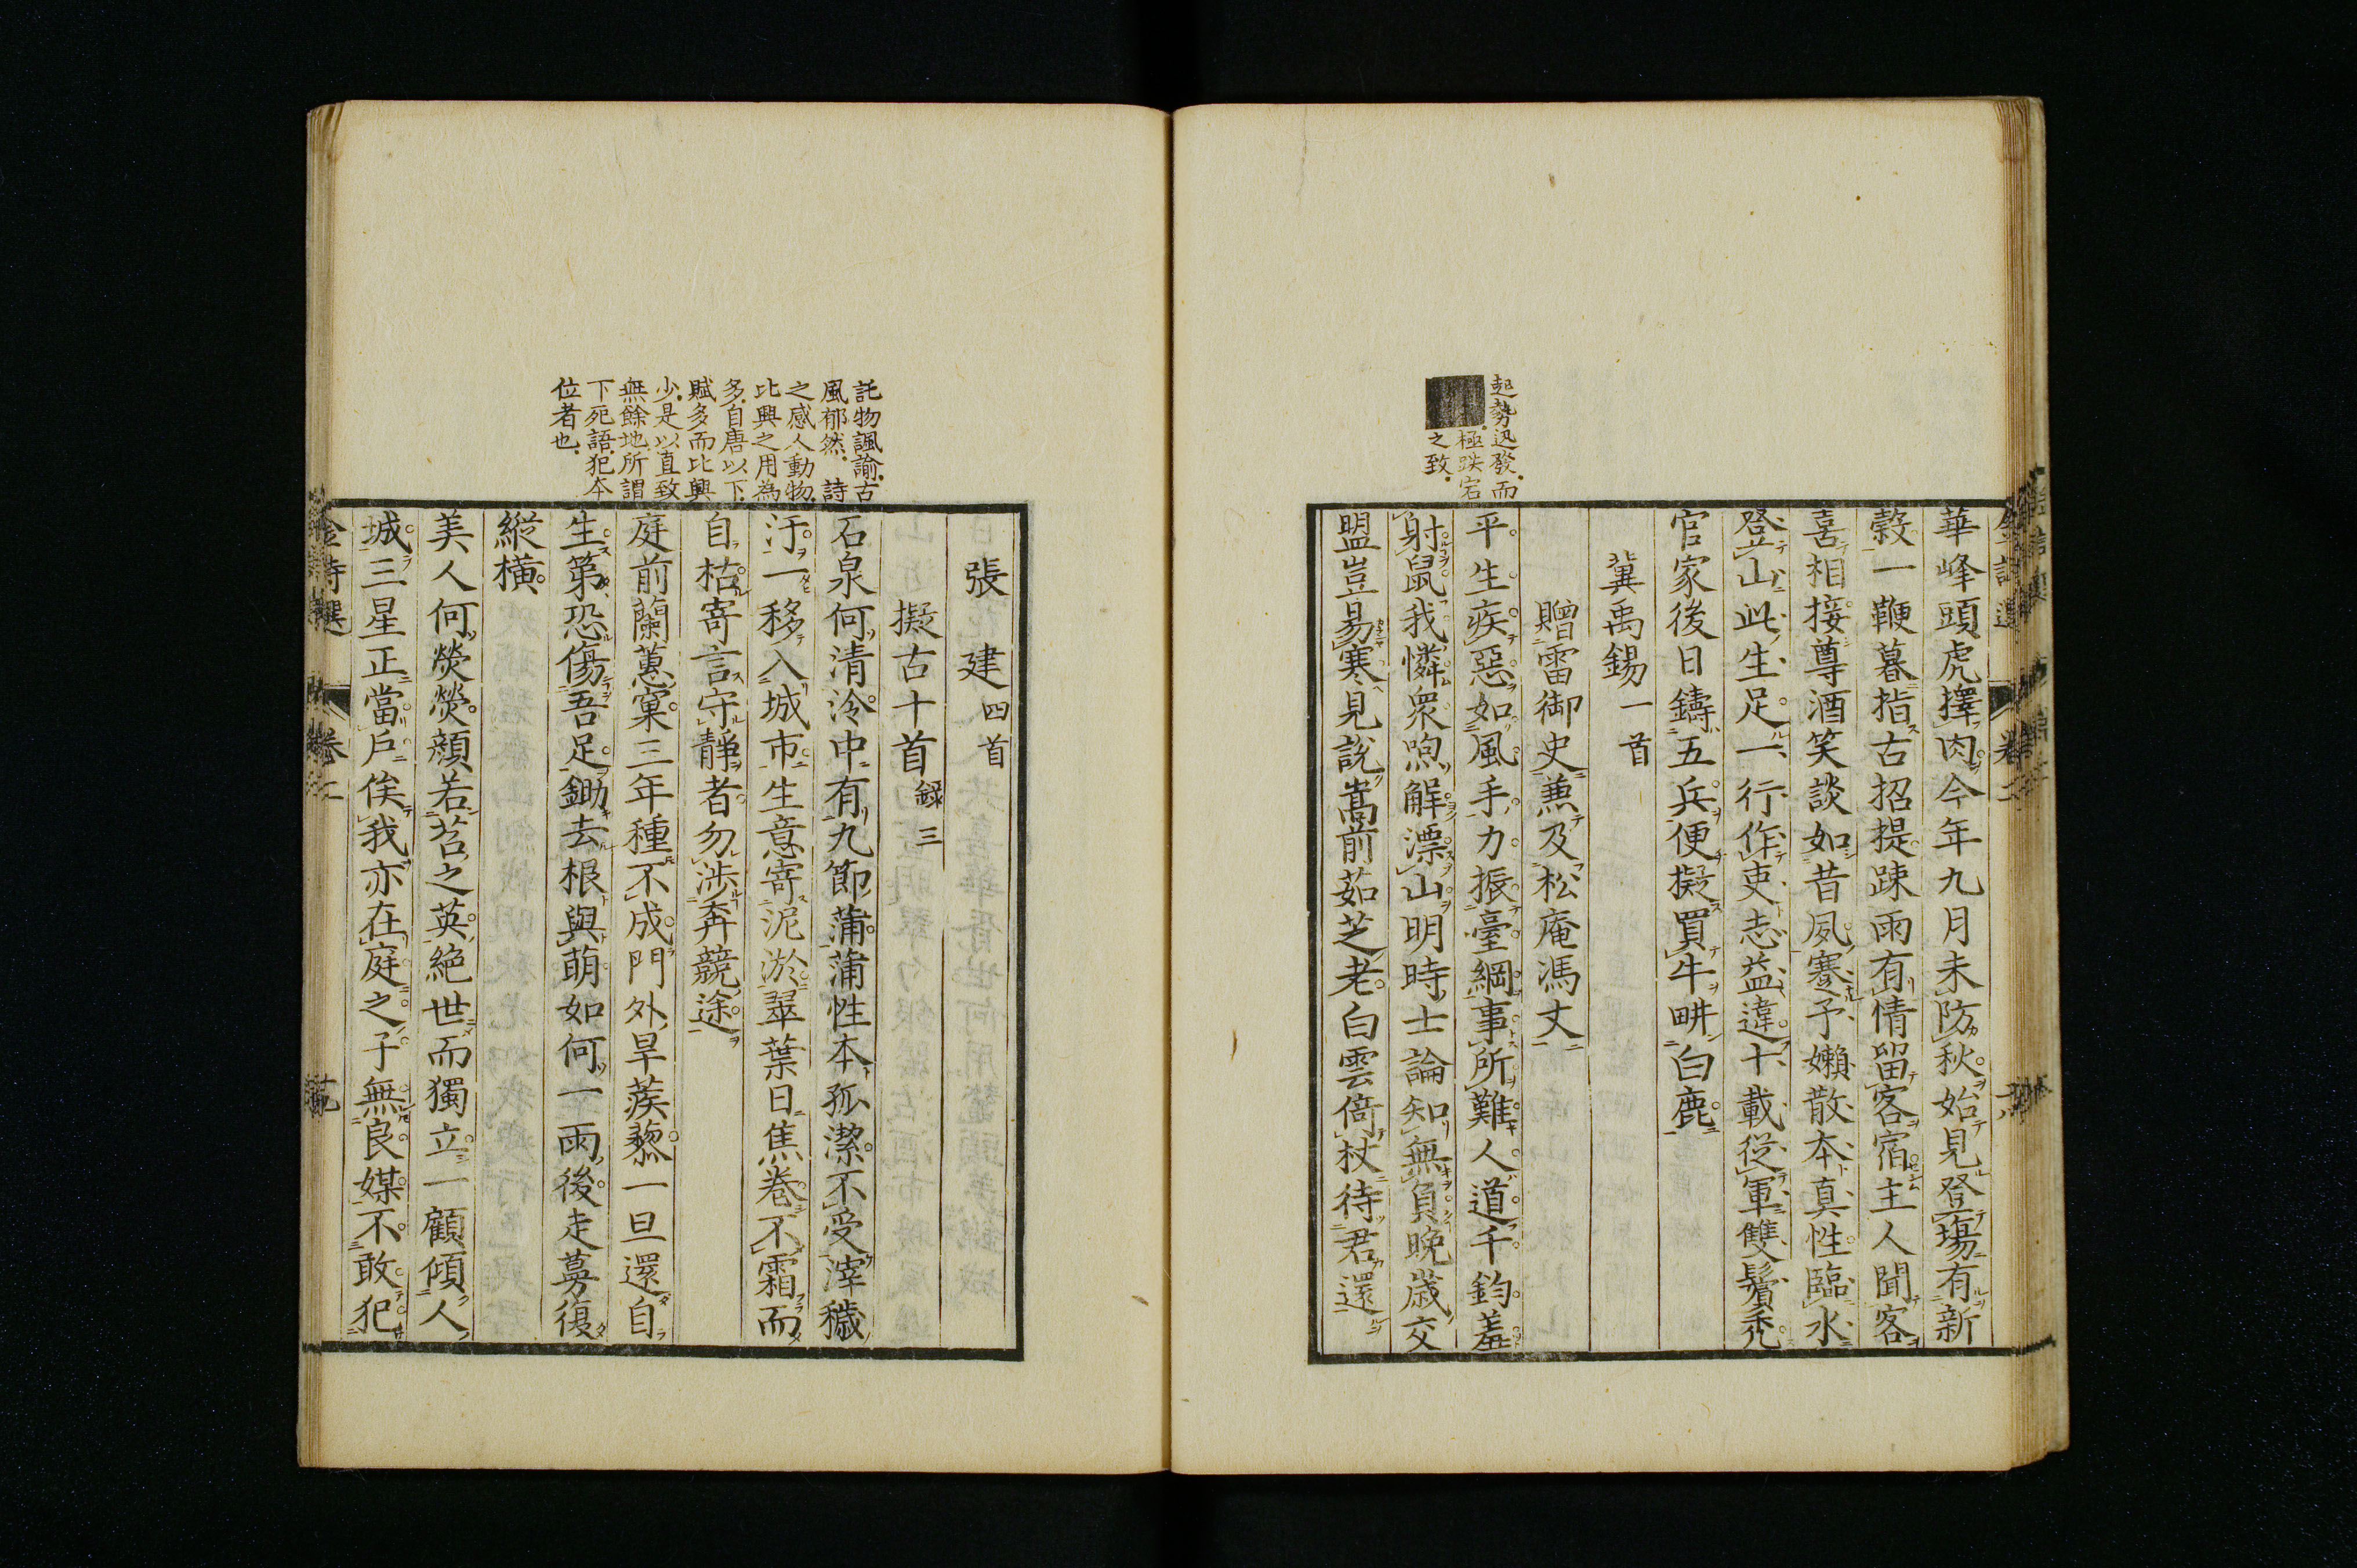 起勢迅發而
極跌宕
之致
華峰頭虎擇肉今年九月未防秋始見登場有新
穀一鞭暮指古招提踈雨有情留客宿主人聞客
喜相接尊酒笑談如昔夙蹇予嬾散本真性臨水
登山此生足一行作吏志益違十載從軍雙鬢禿
官家後日鑄五兵便擬買牛畊白鹿
冀禹錫一首
贈雷御史兼及松庵馮丈
平生疾惡如風手力振臺綱事所難人道千鈞羞
射鼠我憐衆喣解漂山明時士論知無負晚歲交
盟豈易寒見說嵩前茹芝老白雲倚杖待君還
託物諷諭古
風郁然詩
之感人動物
比興之用為
多自唐以下
賦多而比興
少是以直致
無餘地所謂
下死語犯本
位者也
張建四首
擬古十首錄三
石泉何清泠中有九節蒲蒲性本孤潔不受滓穢
汙一移入城市生意寄泥淤翠葉日焦卷不霜而
自枯寄言守靜者勿涉奔競途
庭前蘭蕙窠三年種不成門外旱蒺藜一旦還自
生第恐傷吾足鋤去根與萌如何一雨後走蔓復
縱橫
美人何熒熒顏若苕之英絕世而獨立一顧傾人
城三星正當戶俟我亦在庭之子無良媒不敢犯
金詩選
卷二